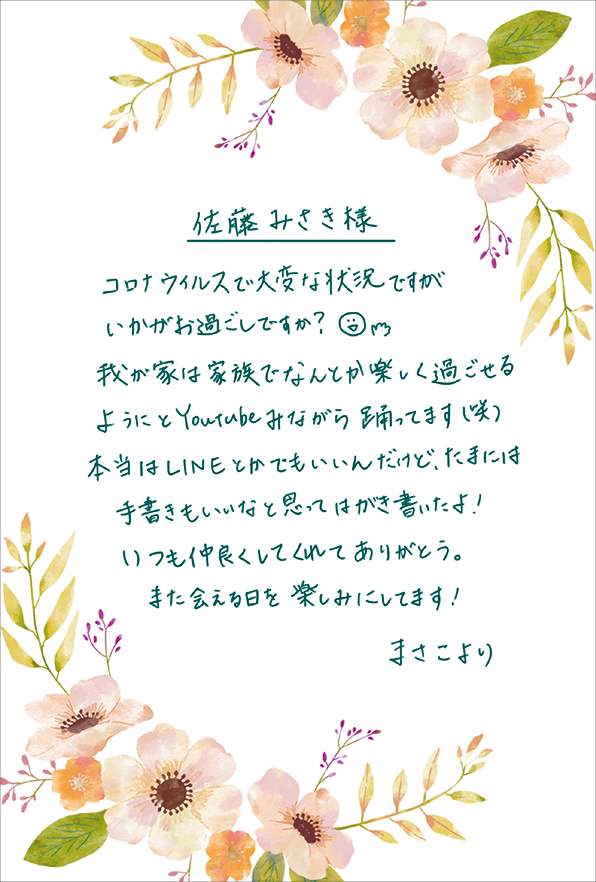 佐藤みさき様
コロナウイルスで大変な状況ですが
いかがお過ごしですか?
我が家は家族でなんとか楽しく過ごせる
ようにとYoutubeみながら踊ってます(咲)
本当はLINEとかでもいいんだけど、たまには
手書きもいいなと思ってはがき書いたよ!
いつも仲良くしてくれてありがとう。
また会える日を楽しみにしてます!
まさこより